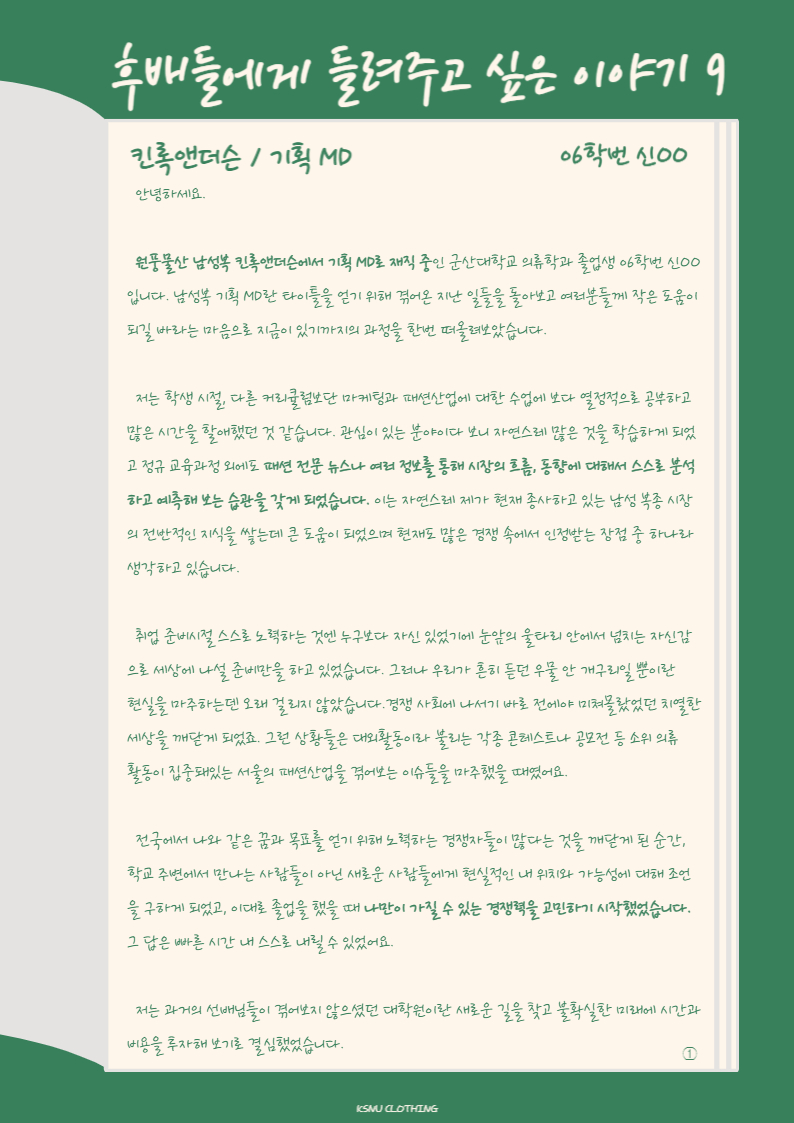 후배들에게 들려주고 싶은 이야기 9
킨록앤더슨 / 기획 MD
06학번 신OO
안녕하세요.
원풍물산 남성복 킨록앤더슨에서 기획 MD로 재직 중인 군산대학교 의류학과 졸업생 06학번 신OO
입니다. 남성복 기획 MD란 타이틀을 얻기 위해 겪어온 지난 일들을 돌아보고 여러분들께 작은 도움이
되길 바라는 마음으로 지금이 있기까지의 과정을 한번 떠올려보았습니다.
저는 학생 시절, 다른 커리큘럼보단 마케팅과 패션산업에 대한 수업에 보다 열정적으로 공부하고
많은 시간을 할애했던 것 같습니다. 관심이 있는 분야이다 보니 자연스레 많은 것을 학습하게 되었
고 정규 교육과정 외에도 패션 전문 뉴스나 여러 정보를 통해 시장의 흐름, 동향에 대해서 스스로 분석
하고 예측해 보는 습관을 갖게 되었습니다. 이는 자연스레 제가 현재 종사하고 있는 남성 복종 시장
의 전반적인 지식을 쌓는데 큰 도움이 되었으며 현재도 많은 경쟁 속에서 인정받는 장점 중 하나라
생각하고 있습니다.
취업 준비시절 스스로 노력하는 것엔 누구보다 자신 있었기에 눈앞의 울타리 안에서 넘치는 자신감
으로 세상에 나설 준비만을 하고 있었습니다. 그러나 우리가 흔히 듣던 우물 안 개구리일 뿐이란
현실을 마주하는덴 오래 걸리지 않았습니다.경쟁 사회에 나서기 바로 전에야 미쳐몰랐었던 치열한
세상을 깨닫게 되었죠. 그런 상황들은 대외활동이라 불리는 각종 콘테스트나 공모전 등 소위 의류
활동이 집중돼있는 서울의 패션산업을 겪어보는 이슈들을 마주했을 때였어요.
전국에서 나와 같은 꿈과 목표를 얻기 위해 노력하는 경쟁자들이 많다는 것을 깨닫게 된 순간,
학교 주변에서 만나는 사람들이 아닌 새로운 사람들에게 현실적인 내 위치와 가능성에 대해 조언
을 구하게 되었고, 이대로 졸업을 했을 때 나만이 가질 수 있는 경쟁력을 고민하기 시작했었습니다.
그 답은 빠른 시간 내 스스로 내릴 수 있었어요.
저는 과거의 선배님들이 겪어보지 않으셨던 대학원이란 새로운 길을 찾고 불확실한 미래에 시간과
비용을 투자해 보기로 결심했었습니다.
①
KSNU CLOTHING